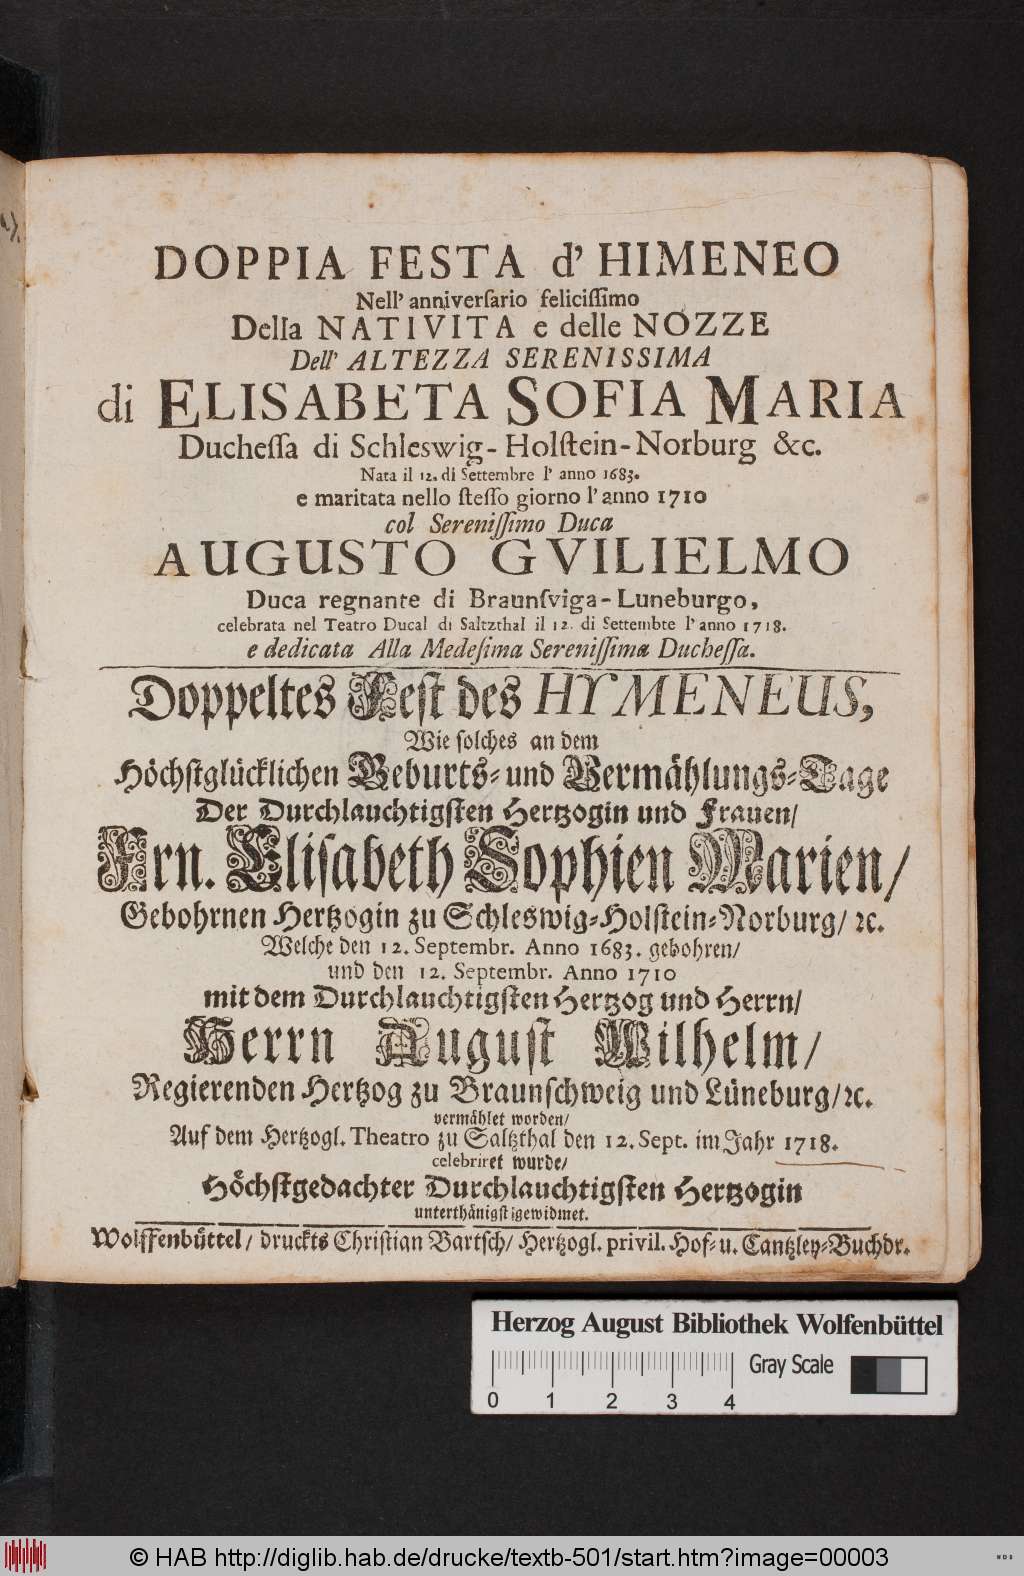 DOPPIA FESTA d' HIMENEO
Nell' anniverſario feliciſſimo
Della NATIVITA e delle NOZZE
Dell' ALTEZZA SERENISSIMA
di ELISABETA SOFIA MARIA
Ducheſſa di Schleswig-Holſtein-Norburg &c.
Nata il 12. di Settembre l' anno 1683.
e maritata nello ſteſſo giorno l' anno 1710
col Sereniſſimo Duca
AUGUSTO GVILIELMO
Duca regnante di Braunſviga-Luneburgo,
celebrata nel Teatro Ducal di Saltzthal il 12. di Settembte l' anno 1718.
e dedicata Alla Medeſima Sereniſſima Ducheſſa.
Doppeltes Feſt des HYMENEUS,
Wie ſolches an dem
Höchſtglücklichen Geburts- und Vermählungs-Tage
Der Durchlauchtigſten Hertzogin und Frauen/
Frn. Eliſabeth Sophien Marien/
Gebohrnen Hertzogin zu Schleswig-Holſtein-Norburg/ ꝛc.
Welche den 12. Septembr. Anno 1683. gebohren/
und den 12. Septembr. Anno 1710
mit dem Durchlauchtigſten Hertzog und Herrn/
Herrn Auguſt Wilhelm/
Regierenden Hertzog zu Braunſchweig und Lüneburg/ ꝛc.
vermählet worden/
Auf dem Hertzogl. Theatro zu Saltzthal den 12. Sept. im Jahr 1718.
celebriret wurde/
Höchſtgedachter Durchlauchtigſten Hertzogin
unterthänigſt gewidmet.
Wolffenbüttel/ druckts Chriſtian Bartſch/ Hertzogl. privil. Hof- u. Cantzley-Buchdr.
Herzog August Bibliothek Wolfenbüttel
Gray Scale
0 1 2 3 4
© HAB http://diglib.hab.de/drucke/textb-501/start.htm?image=00003